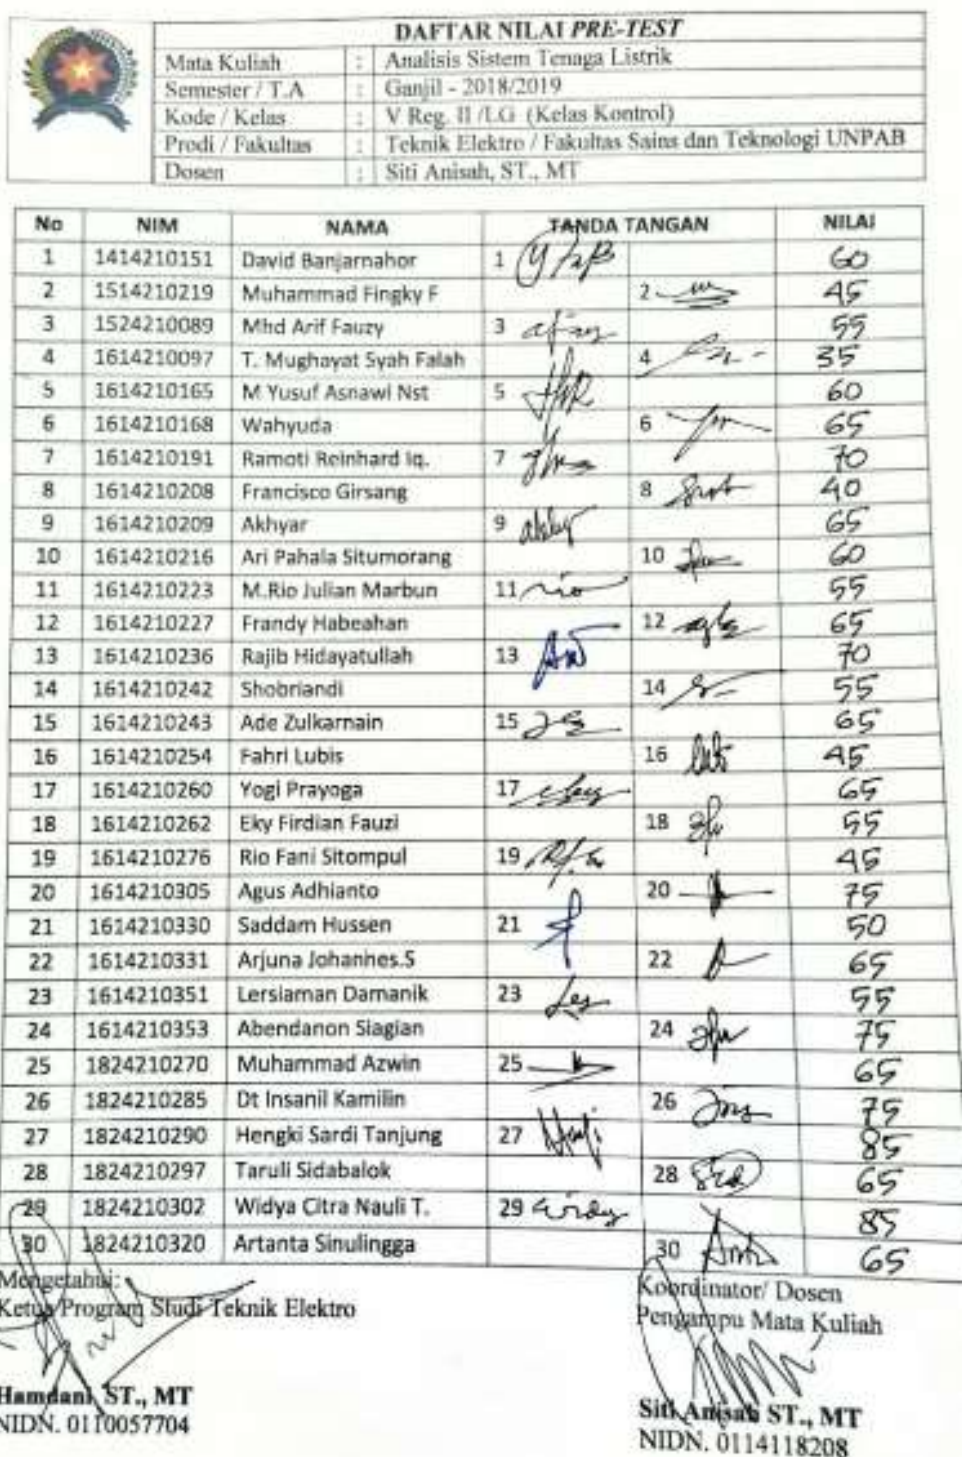 DAFTAR NILAI PRE-TEST
Mata Kuliah : Analisis Sistem Tenaga Listrik
Semester / T.A : Ganjil - 2018/2019
Kode / Kelas : V Reg. II /LG (Kelas Kontrol)
Prodi / Fakultas : Teknik Elektro / Fakultas Sains dan Teknologi UNPAB
Dosen : Siti Anisah, ST., MT
No NIM NAMA TANDA TANGAN NILAI
1 1414210151 David Banjarnahor 1 60
2 1514210219 Muhammad Fingky F 2 45
3 1524210089 Mhd Arif Fauzy 3 55
4 1614210097 T. Mughayat Syah Falah 4 35
5 1614210165 M Yusuf Asnawi Nst 5 60
6 1614210168 Wahyuda 6 65
7 1614210191 Ramoti Reinhard Iq. 7 70
8 1614210208 Francisco Girsang 8 40
9 1614210209 Akhyar 9 65
10 1614210216 Ari Pahala Situmorang 10 60
11 1614210223 M.Rio Julian Marbun 11 rio 55
12 1614210227 Frandy Habeahan 12 65
13 1614210236 Rajib Hidayatullah 13 70
14 1614210242 Shobriandi 14 55
15 1614210243 Ade Zulkarnain 15 65
16 1614210254 Fahri Lubis 16 45
17 1614210260 Yogi Prayoga 17 65
18 1614210262 Eky Firdian Fauzi 18 55
19 1614210276 Rio Fani Sitompul 19 45
20 1614210305 Agus Adhianto 20 75
21 1614210330 Saddam Hussen 21 50
22 1614210331 Arjuna Johanhes.S 22 65
23 1614210351 Lersiaman Damanik 23 55
24 1614210353 Abendanon Siagian 24 75
25 1824210270 Muhammad Azwin 25 65
26 1824210285 Dt Insanil Kamilin 26 75
27 1824210290 Hengki Sardi Tanjung 27 85
28 1824210297 Taruli Sidabalok 28 65
29 1824210302 Widya Citra Nauli T. 29 85
30 1824210320 Artanta Sinulingga 30 65
Mengetahui:
Ketua Program Studi Teknik Elektro
Hamdani, ST., MT
NIDN. 0110057704
Koordinator/ Dosen
Pengampu Mata Kuliah
Siti Anisah ST., MT
NIDN. 0114118208